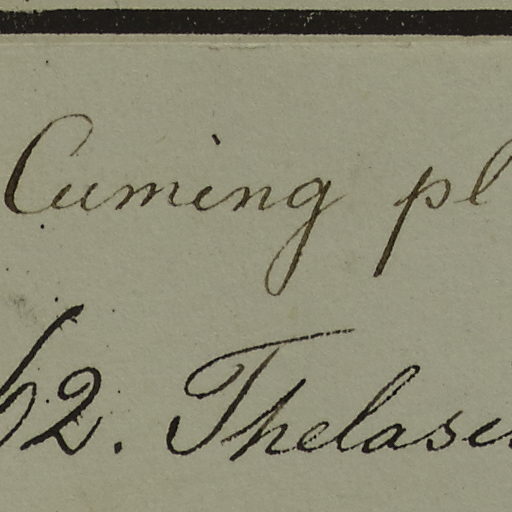 Cuming pl
62. Thelasis